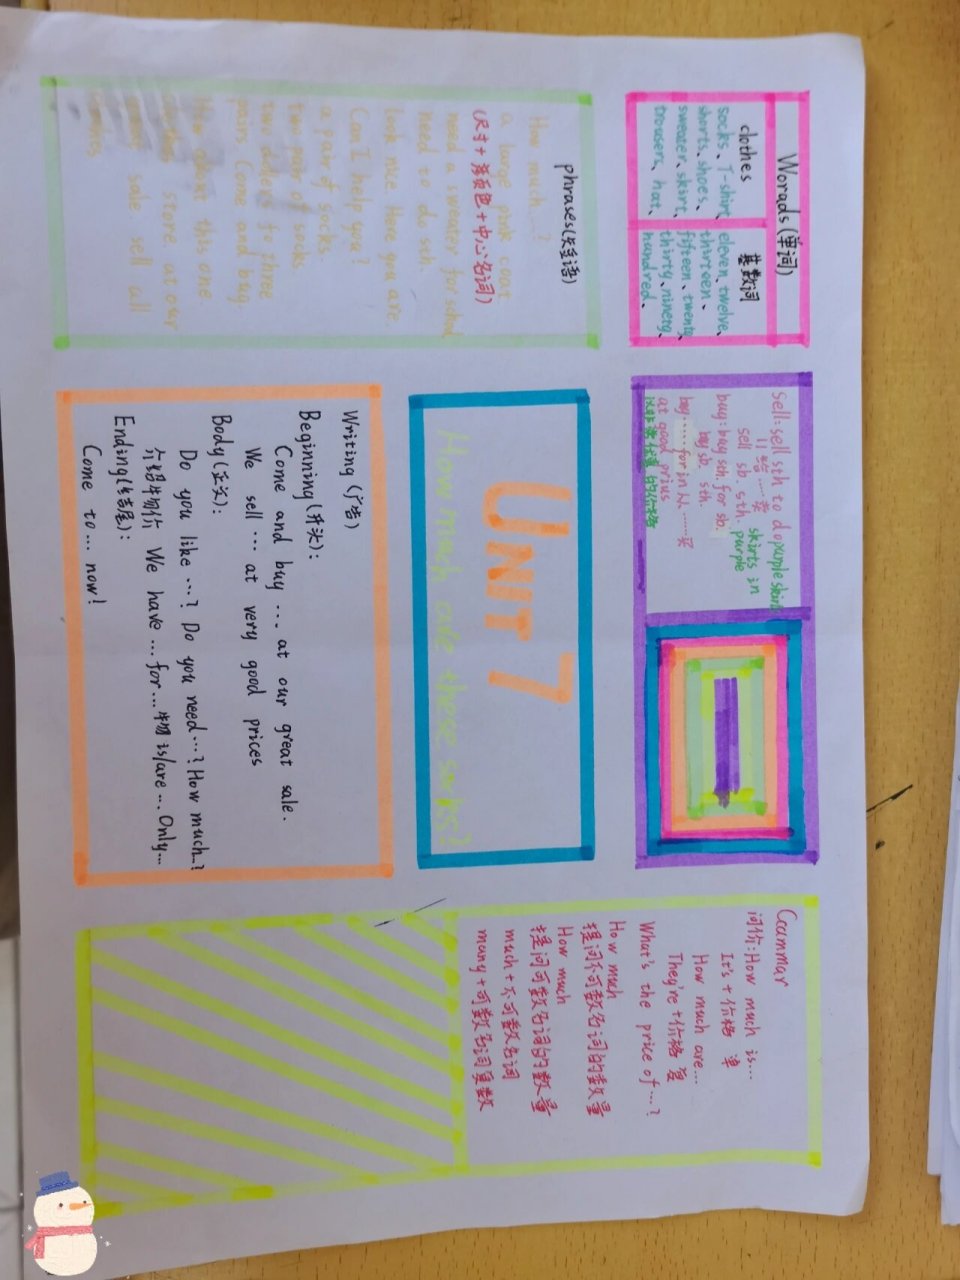 Worads(单词)
clothes
socks、T-shirt、
shorts、shoes、
sweater、skirt、
trousers、hat、
基数词
eleven、twelve、
thirteen、
fifteen、twenty、
thirty、ninety、
hundred、
phrases(短语)
How much......?
a large pink coat
(尺寸+颜色+中心名词)
need a sweater for school
need to do sth
look nice Here you are.
Can I help you?
a pair of socks.
two pair of socks
two dollers to three
pairs. Come and buy
How about this one.
clothes store. at our
sale sell all
sell:sell sth to do purple skirts
=给……卖
sell sb. sth. skirts in
purple
buy:buy sth. for sb.
buy sb. sth.
buy……for in 从……买
at good prius
的价格
Unit 7
How much are these socks?
Writing (广告)
Beginning (开头):
Come and buy ... at our great sale.
We sell ... at very good prices
Body (正文):
Do you like ...? Do you need...? How much...?
介绍物价 We have ... for... 物 is/are ... Only...
Ending(结尾):
Come to... now!
Gaammar
问价:How much is....
It's+价格 单
How much are...
They're+价格 复
What's the price of ...?
How much
提问不可数名词的数量
How much
提问可数名词的数量
much+不可数名词
many+可数名词复数